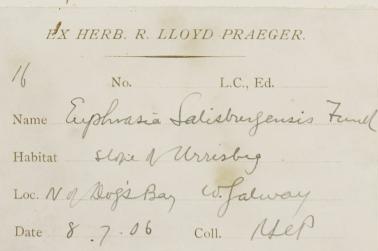 EX HERB. R. LLOYD PRAEGER.
16 No. L.C., Ed.
Name Euphrasia Salisburgensis Funck
Habitat slope of Urrisbeg
Loc. N of Dog's Bay W. Galway
Date 8.7.06 Coll. RLlP